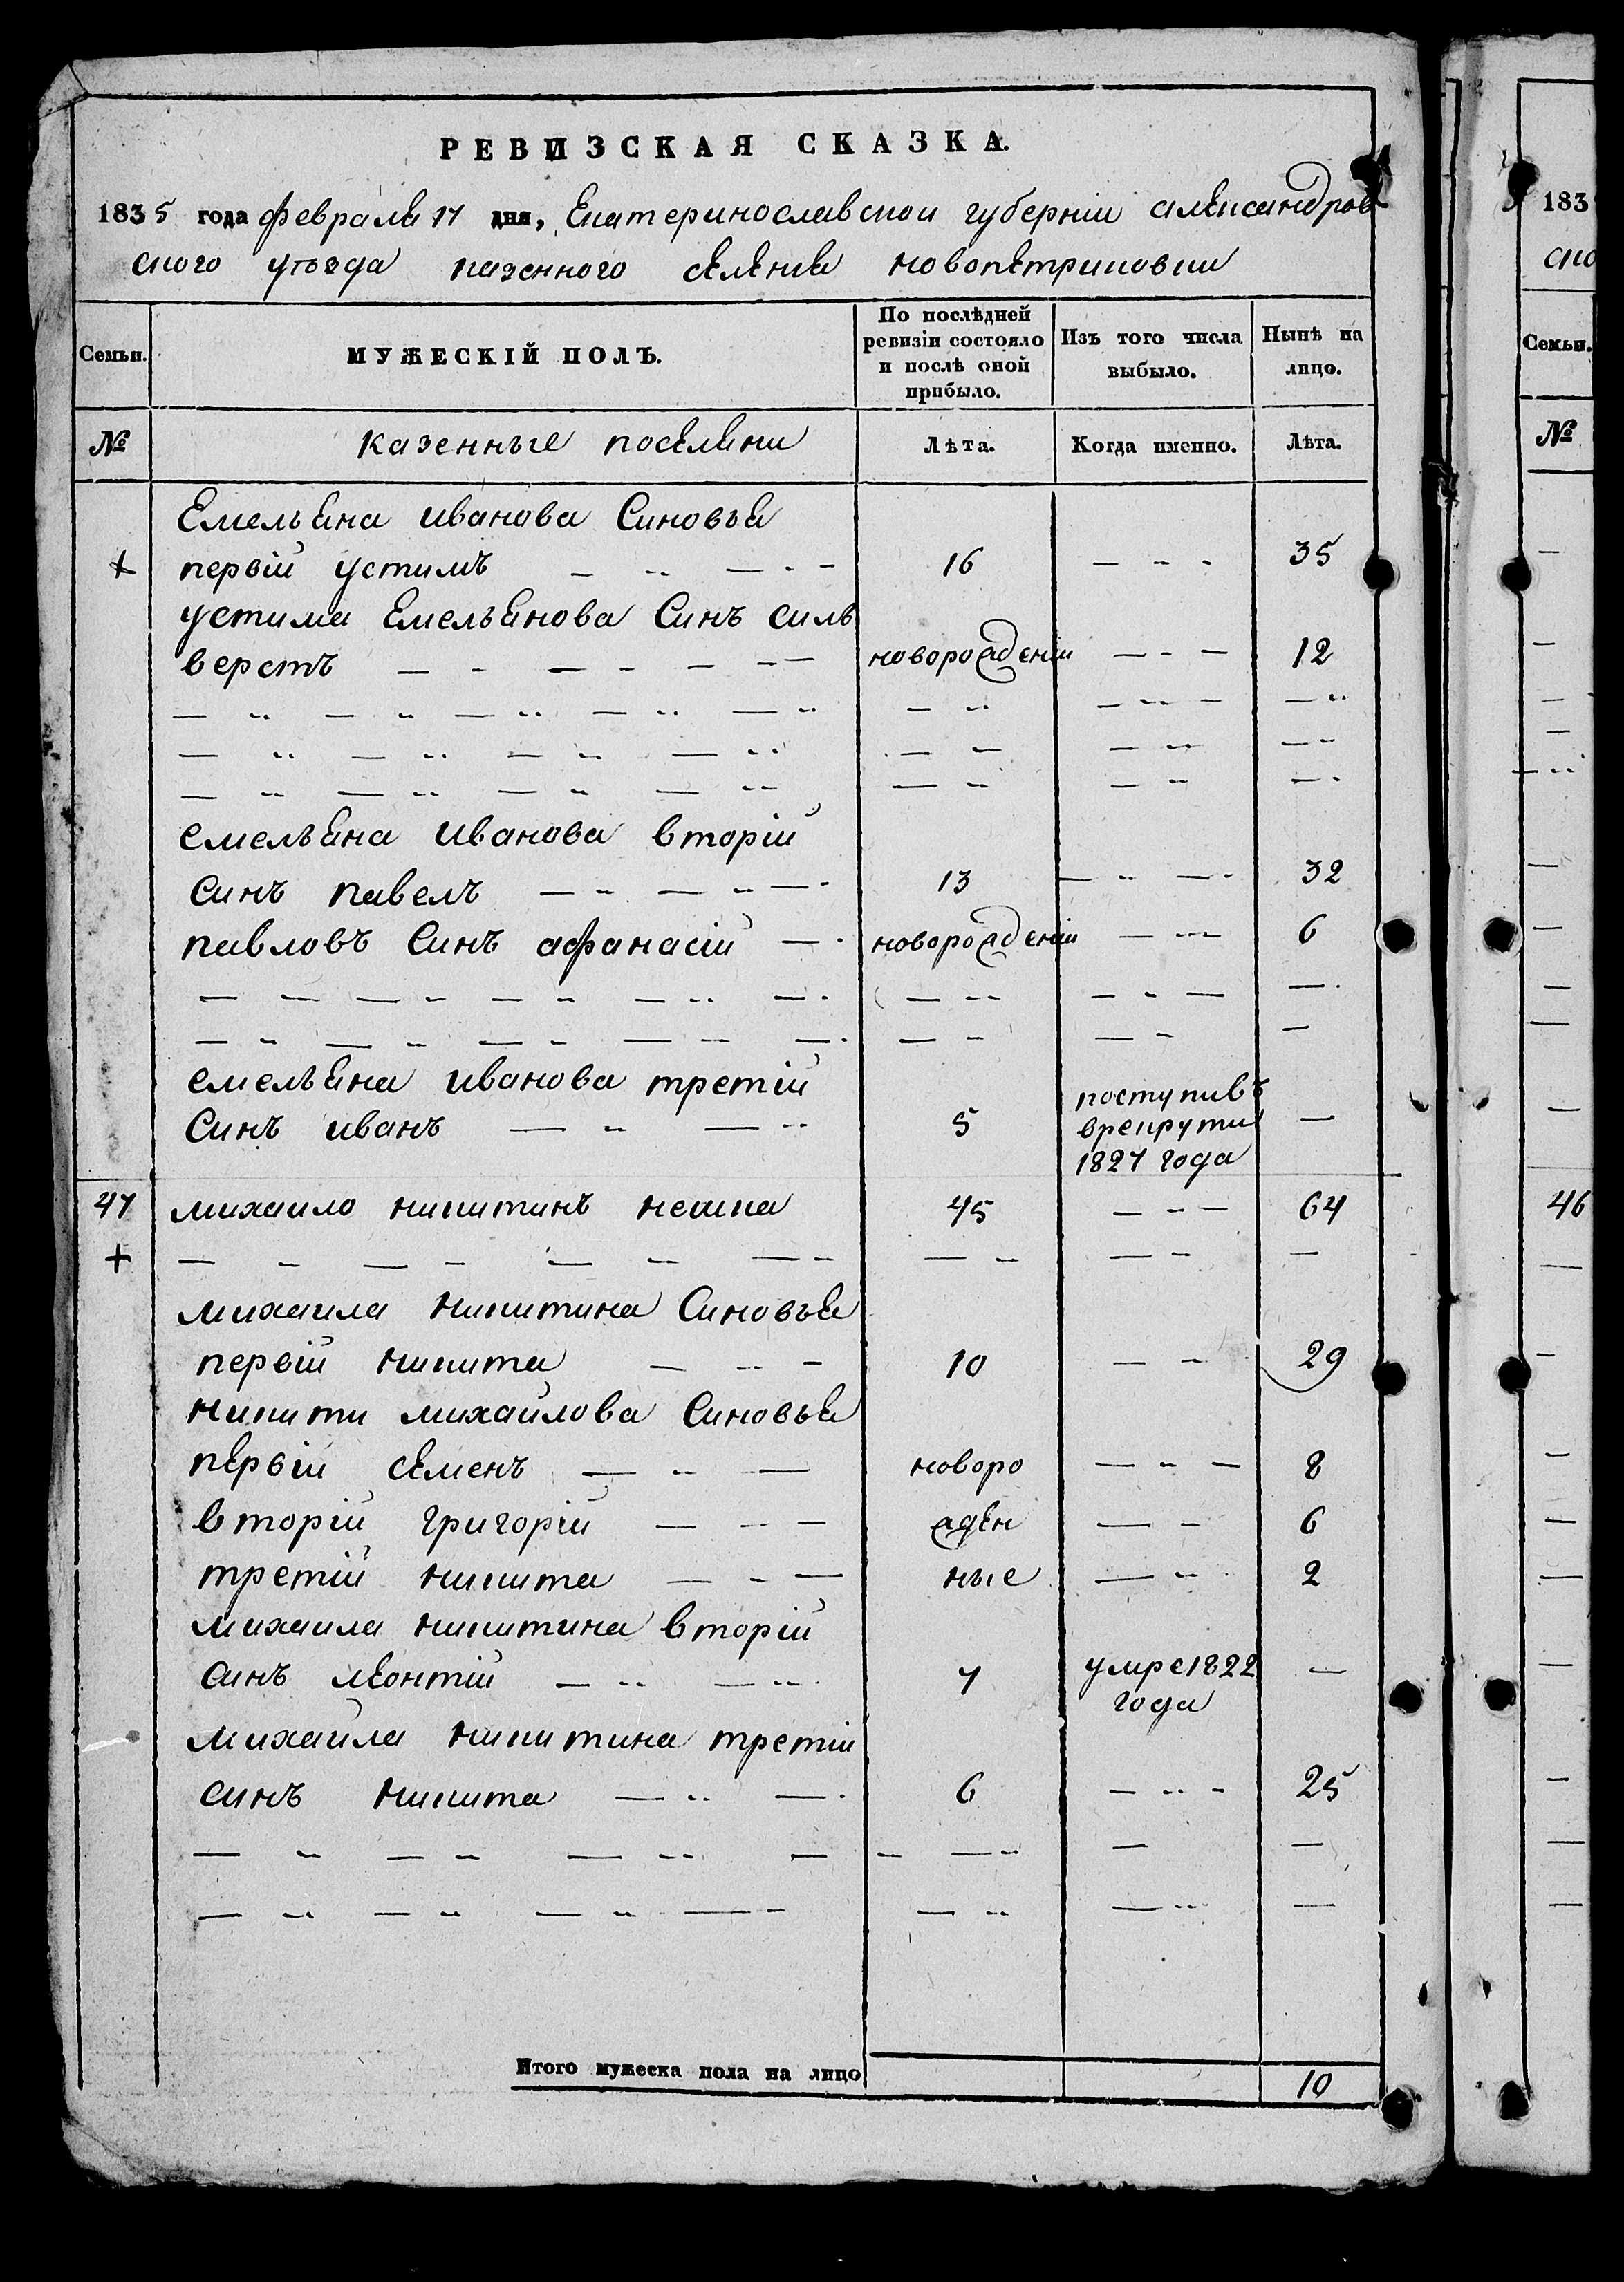 РЕВИЗСКАЯ СКАЗКА.
1835 года февраля 17 дня, Екатеринославской губерніи александров
ского уѣзда казенного селенія новопетриковки
Семьи. МУЖЕСКІЙ ПОЛЪ. По послѣдней ревизіи состояло и послѣ оной прибыло. Изъ того числа выбыло. Нынѣ на лицо.
№ казенные поселяни Лѣта. Когда именно. Лѣта.
Емельяна иванова Синовья
+ первій устимъ 16 35
устима Емельянова Синъ силь
верстъ новорожденій 12
емельяна иванова вторій
синъ павелъ 13 32
павловъ Синъ афанасій новорожденій 6
емельяна иванова третій
Синъ иванъ 5 поступивъ врекрути 1827 года —
47 михаило никитинъ 45 64
+
михаила никитина Синовья
первій никита 10 29
никити михайлова Синовья
первій семенъ новоро 8
вторій григорій жден 6
третій никита ные 2
михаила никитина вторій
синъ леонтій 7 умре 1822 года —
михайла никитина третій
синъ никита 6 25
Итого мужеска пола на лицо 10
183
ско
Семьи.
№
46